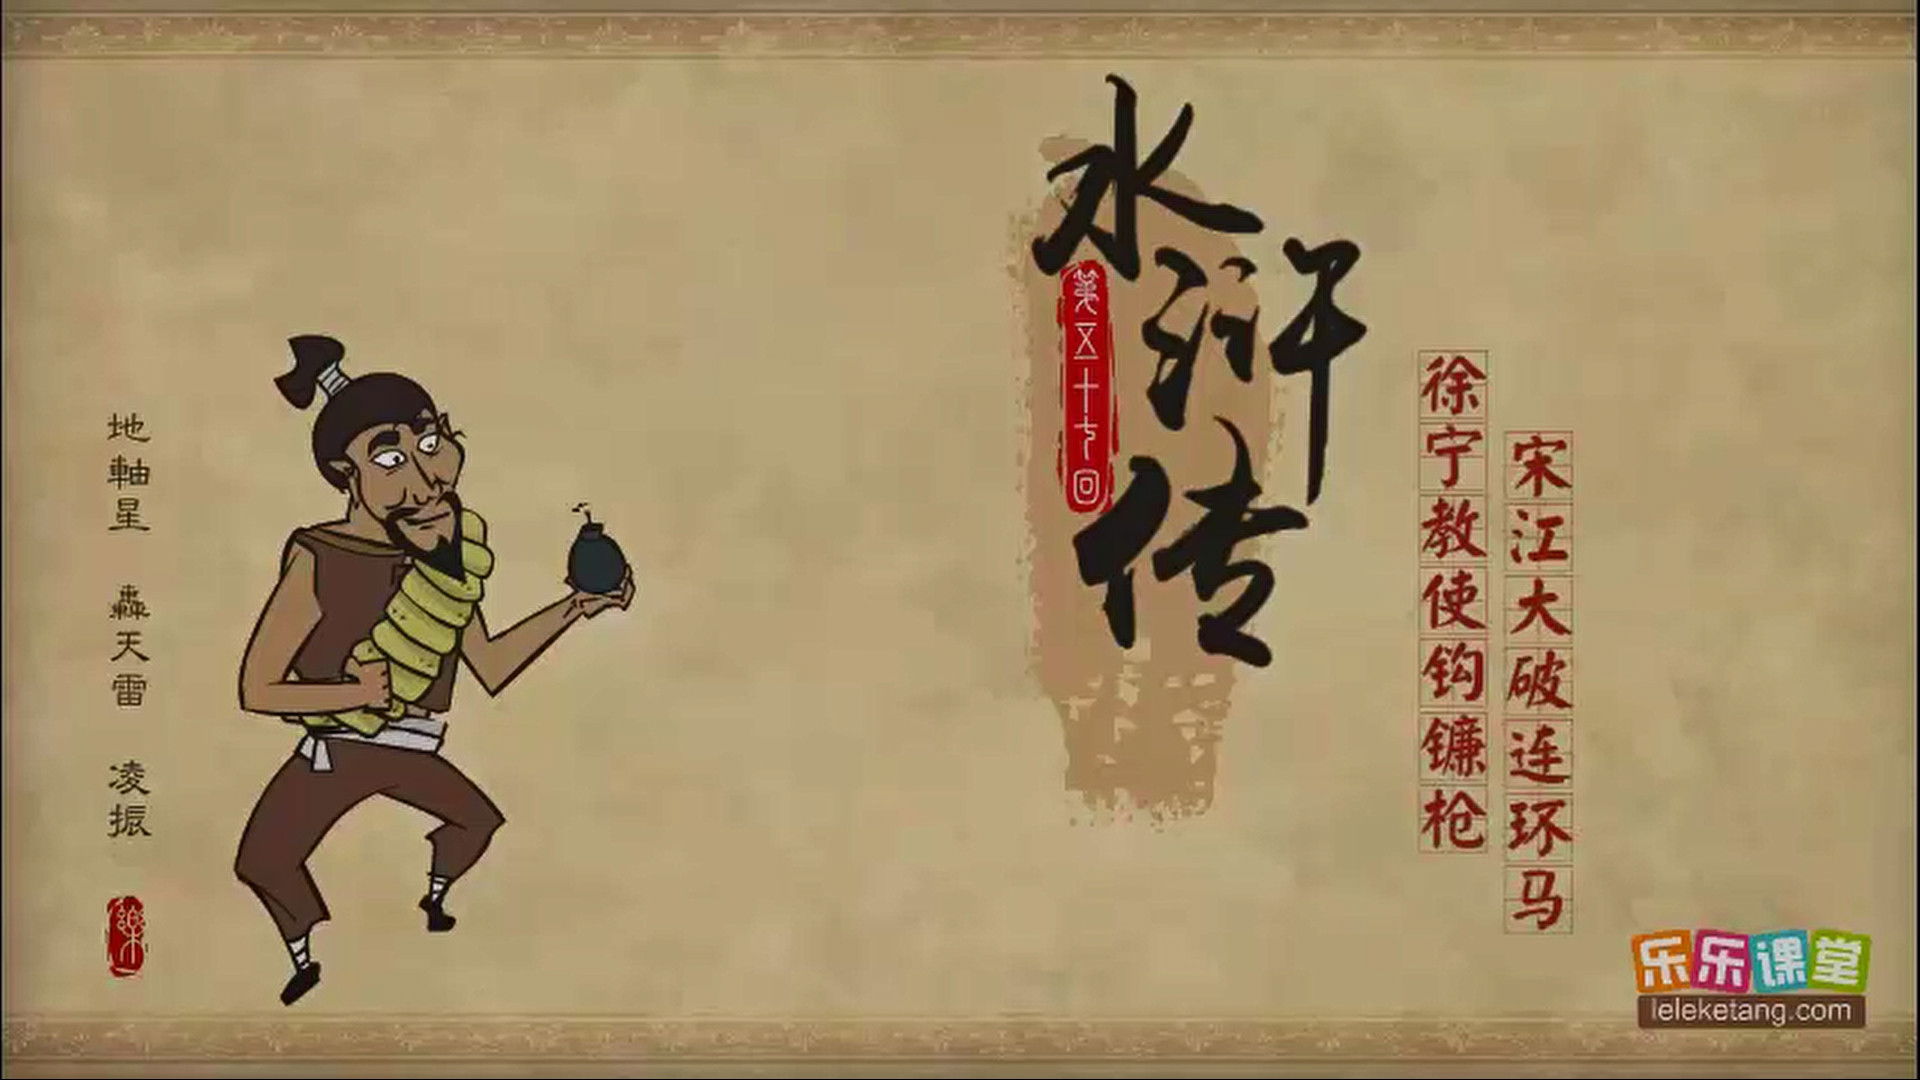 水浒传
第五十七回
徐宁教使钩镰枪
宋江大破连环马
地軸星 轟天雷 凌振
樂
乐乐课堂
leleketang.com